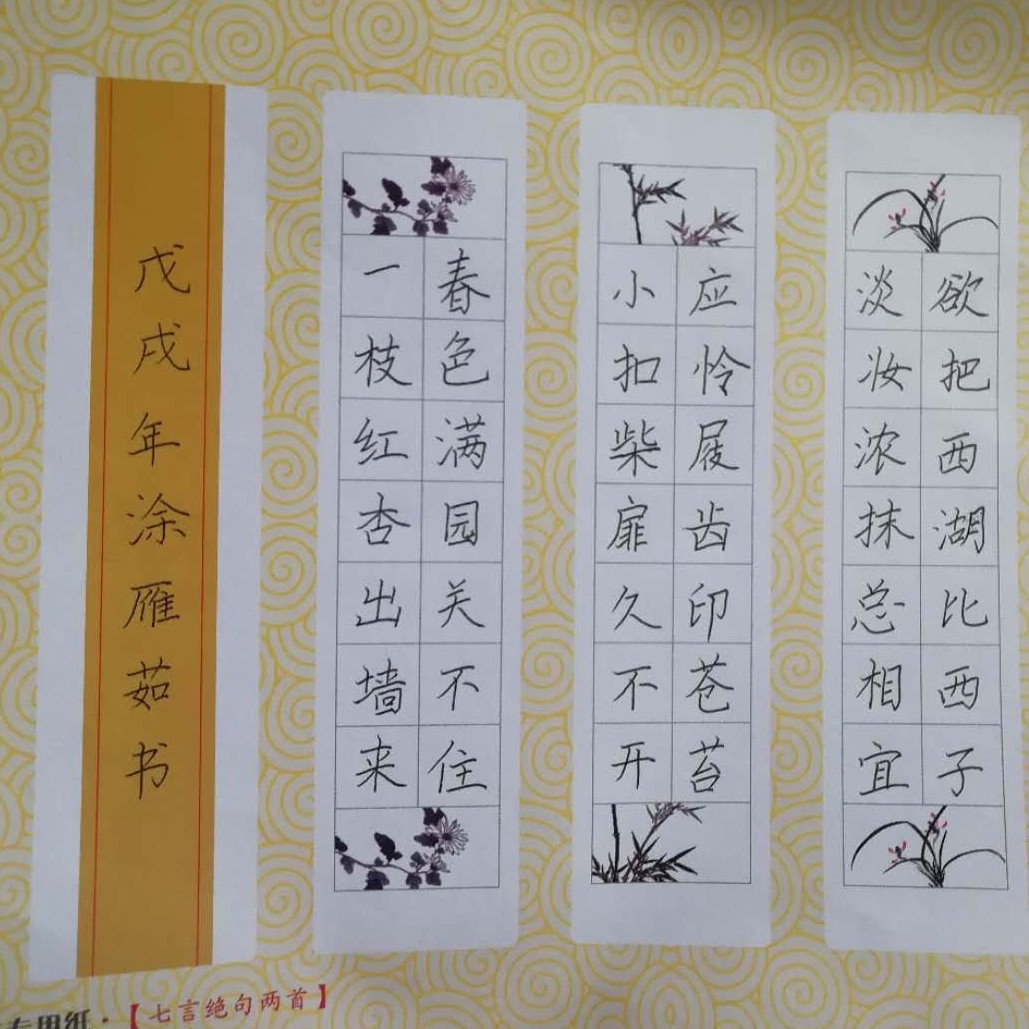 欲把西湖比西子
淡妆浓抹总相宜
应怜屐齿印苍苔
小扣柴扉久不开
春色满园关不住
一枝红杏出墙来
戊戌年涂雁茹书
专用纸·【七言绝句两首】